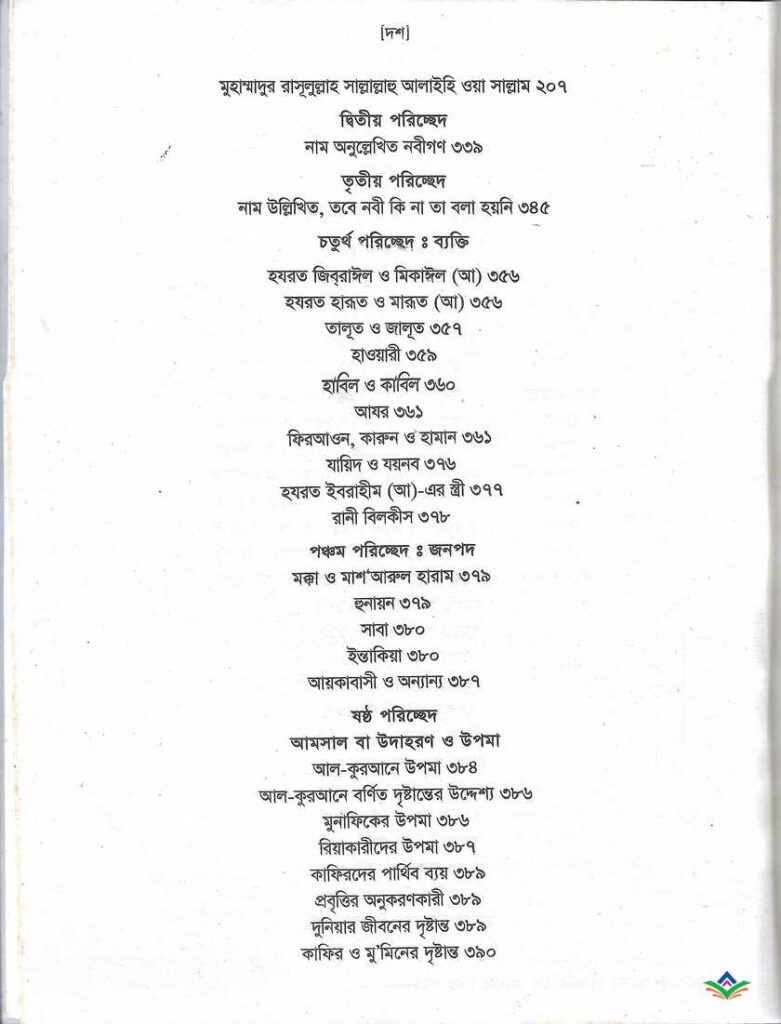 [দশ]
মুহাম্মাদুর রাসূলুল্লাহ সাল্লাল্লাহু আলাইহি ওয়া সাল্লাম ২০৭
দ্বিতীয় পরিচ্ছেদ
নাম অনুল্লেখিত নবীগণ ৩৩৯
তৃতীয় পরিচ্ছেদ
নাম উল্লিখিত, তবে নবী কি না তা বলা হয়নি ৩৪৫
চতুর্থ পরিচ্ছেদ ঃ ব্যক্তি
হযরত জিব্‌রাঈল ও মিকাঈল (আ) ৩৫৬
হযরত হারূত ও মারূত (আ) ৩৫৬
তালূত ও জালূত ৩৫৭
হাওয়ারী ৩৫৯
হাবিল ও কাবিল ৩৬০
আযর ৩৬১
ফিরআওন, কারুন ও হামান ৩৬১
যায়িদ ও যয়নব ৩৭৬
হযরত ইবরাহীম (আ)-এর স্ত্রী ৩৭৭
রানী বিলকীস ৩৭৮
পঞ্চম পরিচ্ছেদ ঃ জনপদ
মক্কা ও মাশ‘আরুল হারাম ৩৭৯
হুনায়ন ৩৭৯
সাবা ৩৮০
ইন্তাকিয়া ৩৮০
আয়কাবাসী ও অন্যান্য ৩৮৭
ষষ্ঠ পরিচ্ছেদ
আমসাল বা উদাহরণ ও উপমা
আল-কুরআনে উপমা ৩৮৪
আল-কুরআনে বর্ণিত দৃষ্টান্তের উদ্দেশ্য ৩৮৬
মুনাফিকের উপমা ৩৮৬
রিয়াকারীদের উপমা ৩৮৭
কাফিরদের পার্থিব ব্যয় ৩৮৯
প্রবৃত্তির অনুকরণকারী ৩৮৯
দুনিয়ার জীবনের দৃষ্টান্ত ৩৮৯
কাফির ও মু'মিনের দৃষ্টান্ত ৩৯০